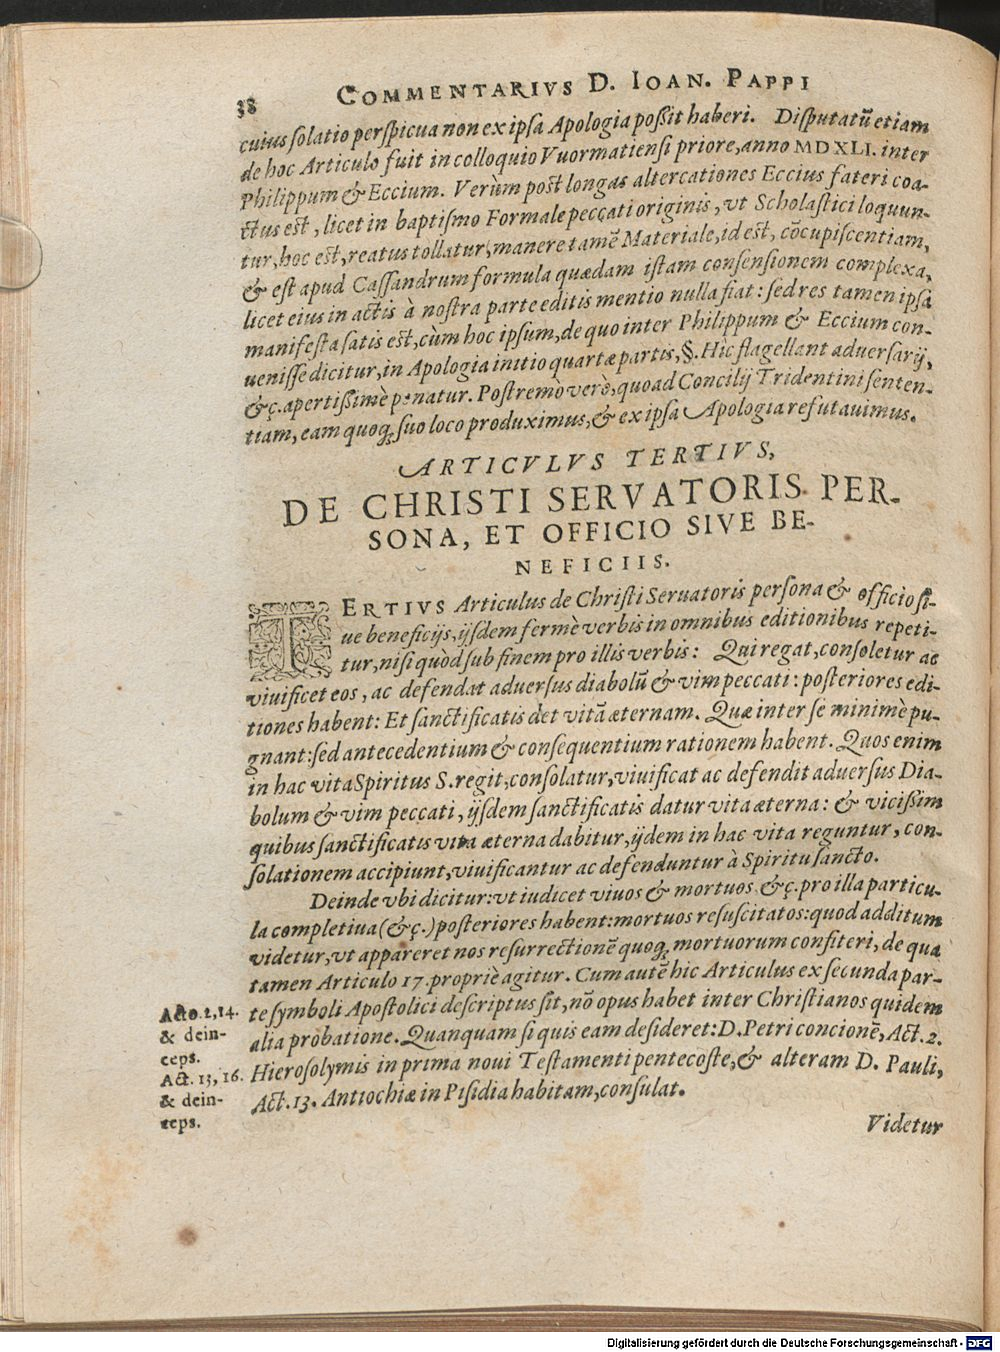 38 COMMENTARIVS D. IOAN. PAPPI
cuius solatio perspicua non ex ipsa Apologia poßit haberi. Disputatū etiam
de hoc Articulo fuit in colloquio Vuormatiensi priore, anno MDXLI. inter
Philippum & Eccium. Verùm post longas altercationes Eccius fateri coa-
ctus est, licet in baptismo Formale peccati originis, vt Scholastici loquun-
tur, hoc est, reatus tollatur, manere tamē Materiale, id est, cōcupiscentiam,
& est apud Cassandrum formula quædam istam consensionem complexa,
licet eius in actis à nostra parte editis mentio nulla fiat: sed res tamen ipsa
manifesta satis est, cùm hoc ipsum, de quo inter Philippum & Eccium con-
uenisse dicitur, in Apologia initio quartæ partis, §. Hîc flagellant aduersarij,
&ç. apertißimè ponatur. Postremò verò, quoad Concilij Tridentini senten-
tiam, eam quoq; suo loco produximus, & ex ipsa Apologia refutauimus.
ARTICVLVS TERTIVS,
DE CHRISTI SERVATORIS PER-
SONA, ET OFFICIO SIVE BE-
NEFICIIS.
TERTIVS Articulus de Christi Seruatoris persona & officio si-
ue beneficijs, ijsdem fermè verbis in omnibus editionibus repeti-
tur, nisi quòd sub finem pro illis verbis: Qui regat, consoletur ac
viuificet eos, ac defendat aduersus diabolū & vim peccati: posteriores edi-
tiones habent: Et sanctificatis det vitā æternam. Quæ inter se minimè pu-
gnant: sed antecedentium & consequentium rationem habent. Quos enim
in hac vita Spiritus S. regit, consolatur, viuificat ac defendit aduersus Dia-
bolum & vim peccati, ijsdem sanctificatis datur vita æterna: & vicißim
quibus sanctificatis vita æterna dabitur, ijdem in hac vita reguntur, con-
solationem accipiunt, viuificantur ac defenduntur à Spiritu sancto.
Deinde vbi dicitur: vt iudicet viuos & mortuos &ç. pro illa particu-
la completiua (&ç.) posteriores habent: mortuos resuscitatos: quod additum
videtur, vt appareret nos resurrectionē quoq; mortuorum confiteri, de qua
tamen Articulo 17. propriè agitur. Cum autē hic Articulus ex secunda par-
te symboli Apostolici descriptus sit, nō opus habet inter Christianos quidem
alia probatione. Quanquam si quis eam desideret: D. Petri concionē, Act. 2.
Hierosolymis in prima noui Testamenti pentecoste, & alteram D. Pauli,
Act. 13. Antiochiæ in Pisidia habitam, consulat.
Acto. 2, 14.
& dein-
ceps.
Act. 13, 16.
& dein-
ceps.
Videtur
Digitalisierung gefördert durch die Deutsche Forschungsgemeinschaft - DFG